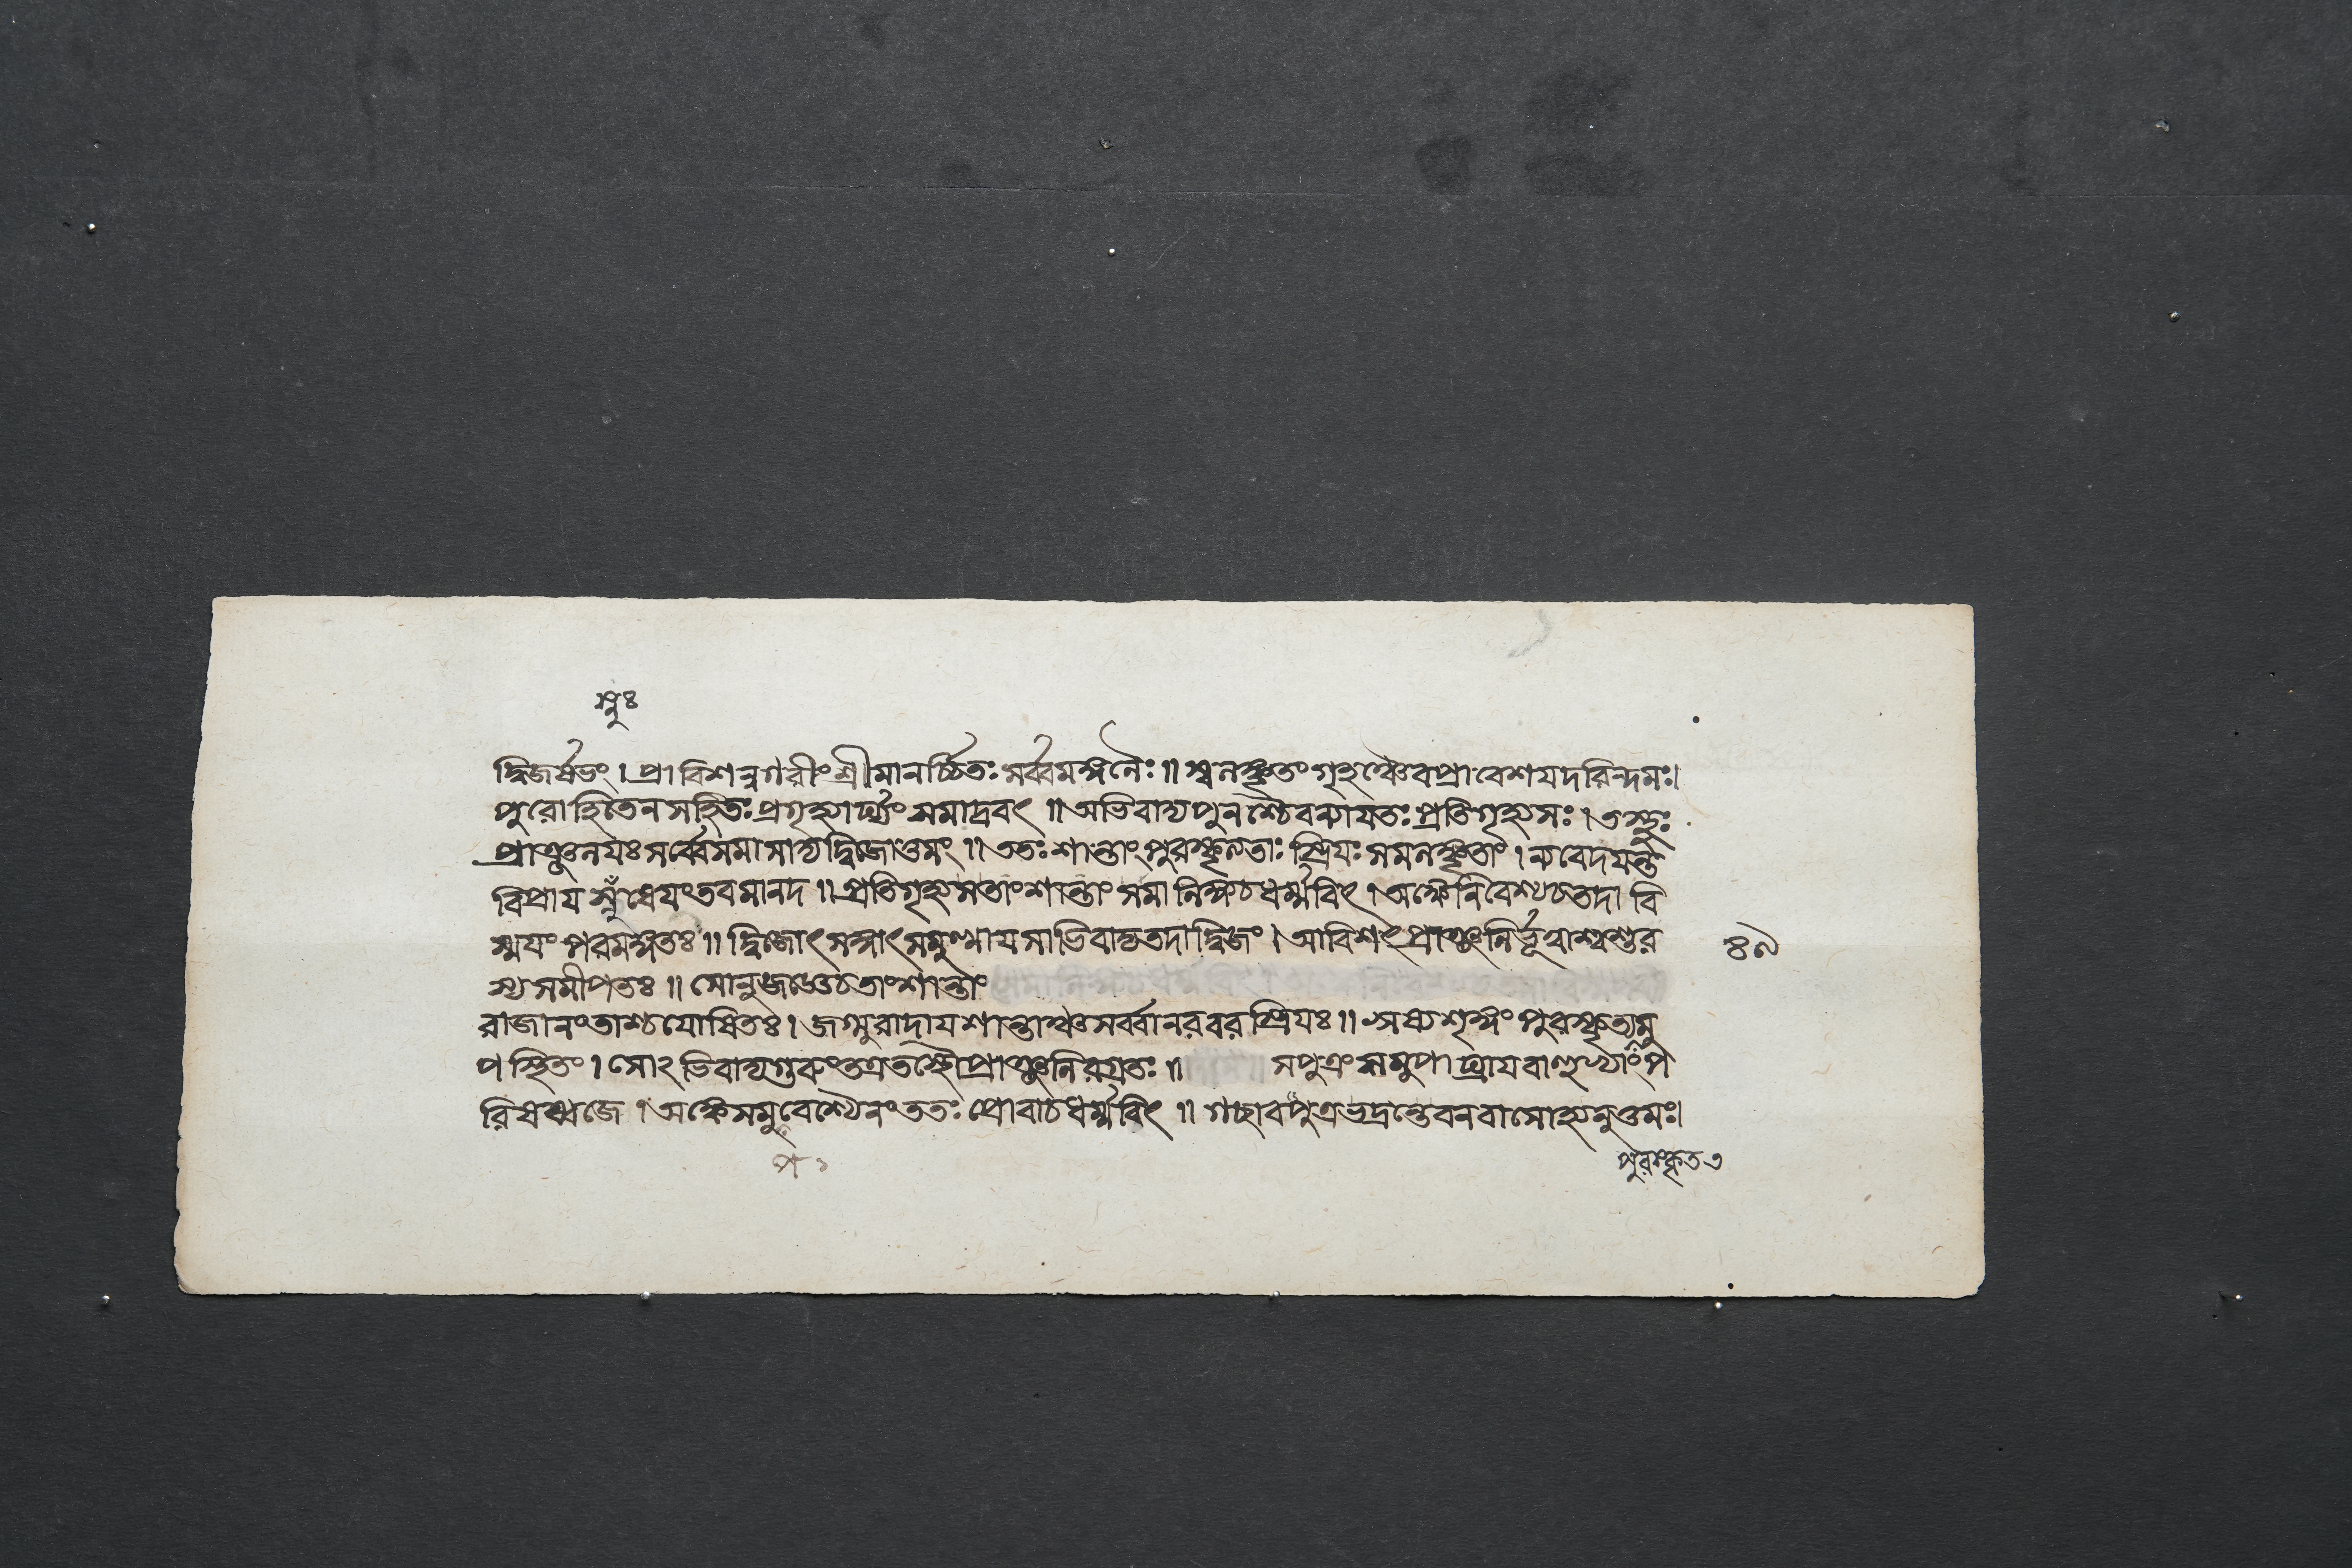 স্নুঃ
দ্বিজর্ষভং । প্রাবিশন্নগরীং শ্রীমানর্চ্চিতঃ সর্ব্বমঙ্গলৈঃ ॥ স্বলঙ্কৃতং গৃহঞ্চৈব প্রাবেশয়দরিন্দমঃ।
পুরোহিতেন সহিতঃ প্রগৃহ্যার্ঘ্যং সমাদ্রবৎ ॥ অভিবাদ্য পুনশ্চৈব ন্যায়তঃ প্রতিগৃহ্য সঃ । তস্থুঃ
প্রাঞ্জলয়ঃ সর্ব্বে সমাসাদ্য দ্বিজোত্তমং ॥ ততঃ শান্তাং পুরস্কৃত্য তাঃ স্ত্রিয়ঃ সমলঙ্কৃতাং । ন্যবেদয়ন্ত
বিপ্রায় স্নুষেয়ং তব মানদ ॥ প্রতিগৃহ্য স তাং শান্তাং সমালিঙ্গ্য চ ধর্ম্মবিৎ । অঙ্কে নিবেশ্য চ তদা বি
স্ময়ং পরমঙ্গতঃ ॥ দ্বিজোৎসঙ্গাৎ সমুত্থায় সাভিবাদ্য তদা দ্বিজং । আবিশৎ প্রাঞ্জলির্ভূত্বা শ্বশুর
স্য সমীপতঃ ॥ সোনুজজ্ঞে চ তাং শান্তাং
রাজানং তাশ্চ যোষিতঃ । জগ্মুরাদায় শান্তাঞ্চ সর্ব্বা নরবরস্ত্রিয়ঃ ॥ ঋষ্যশৃঙ্গং পুরস্কৃত্য মু
পস্থিতং । সোঽভিবাদ্য গুরুং তত্র তস্থৌ প্রাঞ্জলিরগ্রতঃ ॥ স পুত্রং সমুপাঘ্রায় বাহুভ্যাং প
রিষষ্বজে । অঙ্কে সমুবেশ্যৈনং ততঃ প্রোবাচ ধর্ম্মবিৎ ॥ গচ্ছাব পুত্র ভদ্রন্তে বনবাসোহ্যনুত্তমঃ।
৪৯
প ১
পুরস্কৃত ৩